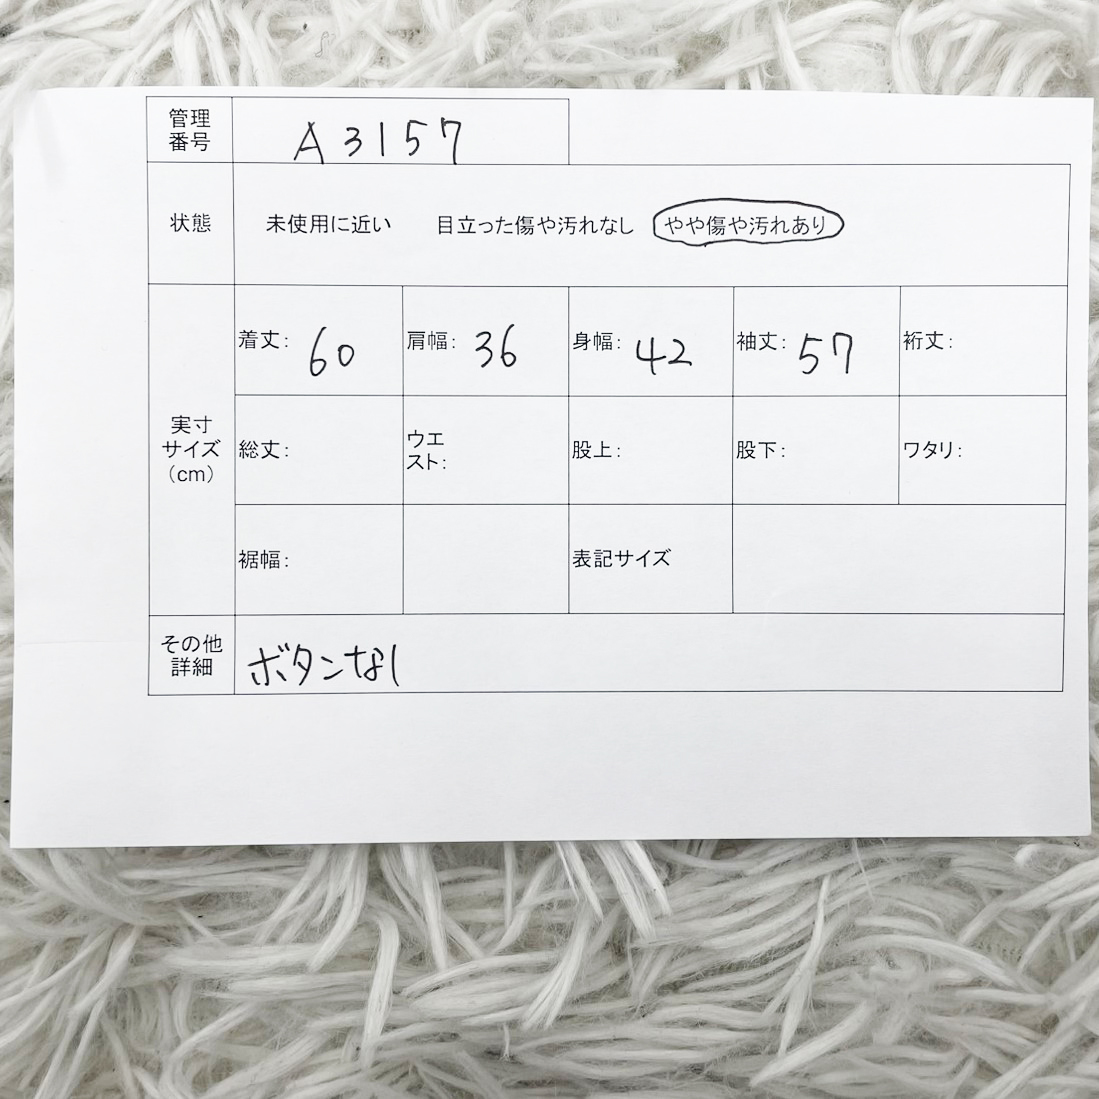 管理
番号
A3157
状態
未使用に近い 目立った傷や汚れなし やや傷や汚れあり
実寸
サイズ
（cm）
着丈： 60
肩幅： 36
身幅： 42
袖丈： 57
裄丈：
総丈：
ウエ
スト：
股上：
股下：
ワタリ：
裾幅：
表記サイズ
その他
詳細
ボタンなし